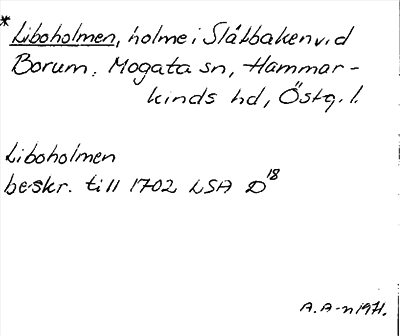 * Liboholmen, holme i Slätbaken v.d
Borum, Mogata sn, Hammar-
kinds hd, Östg. l.
Liboholmen
beskr. till 1702 LSA D18
A. A-n 1971.